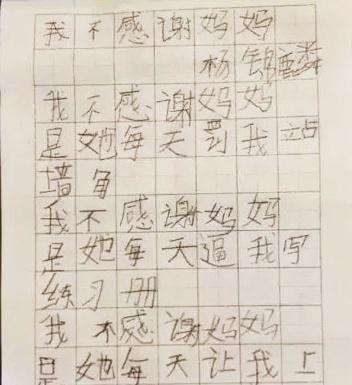 我不感谢妈妈
杨锦麟
我不感谢妈妈
是她每天罚我站
墙角
我不感谢妈妈
是她每天逼我写
练习册
我不感谢妈妈
是她每天让我上